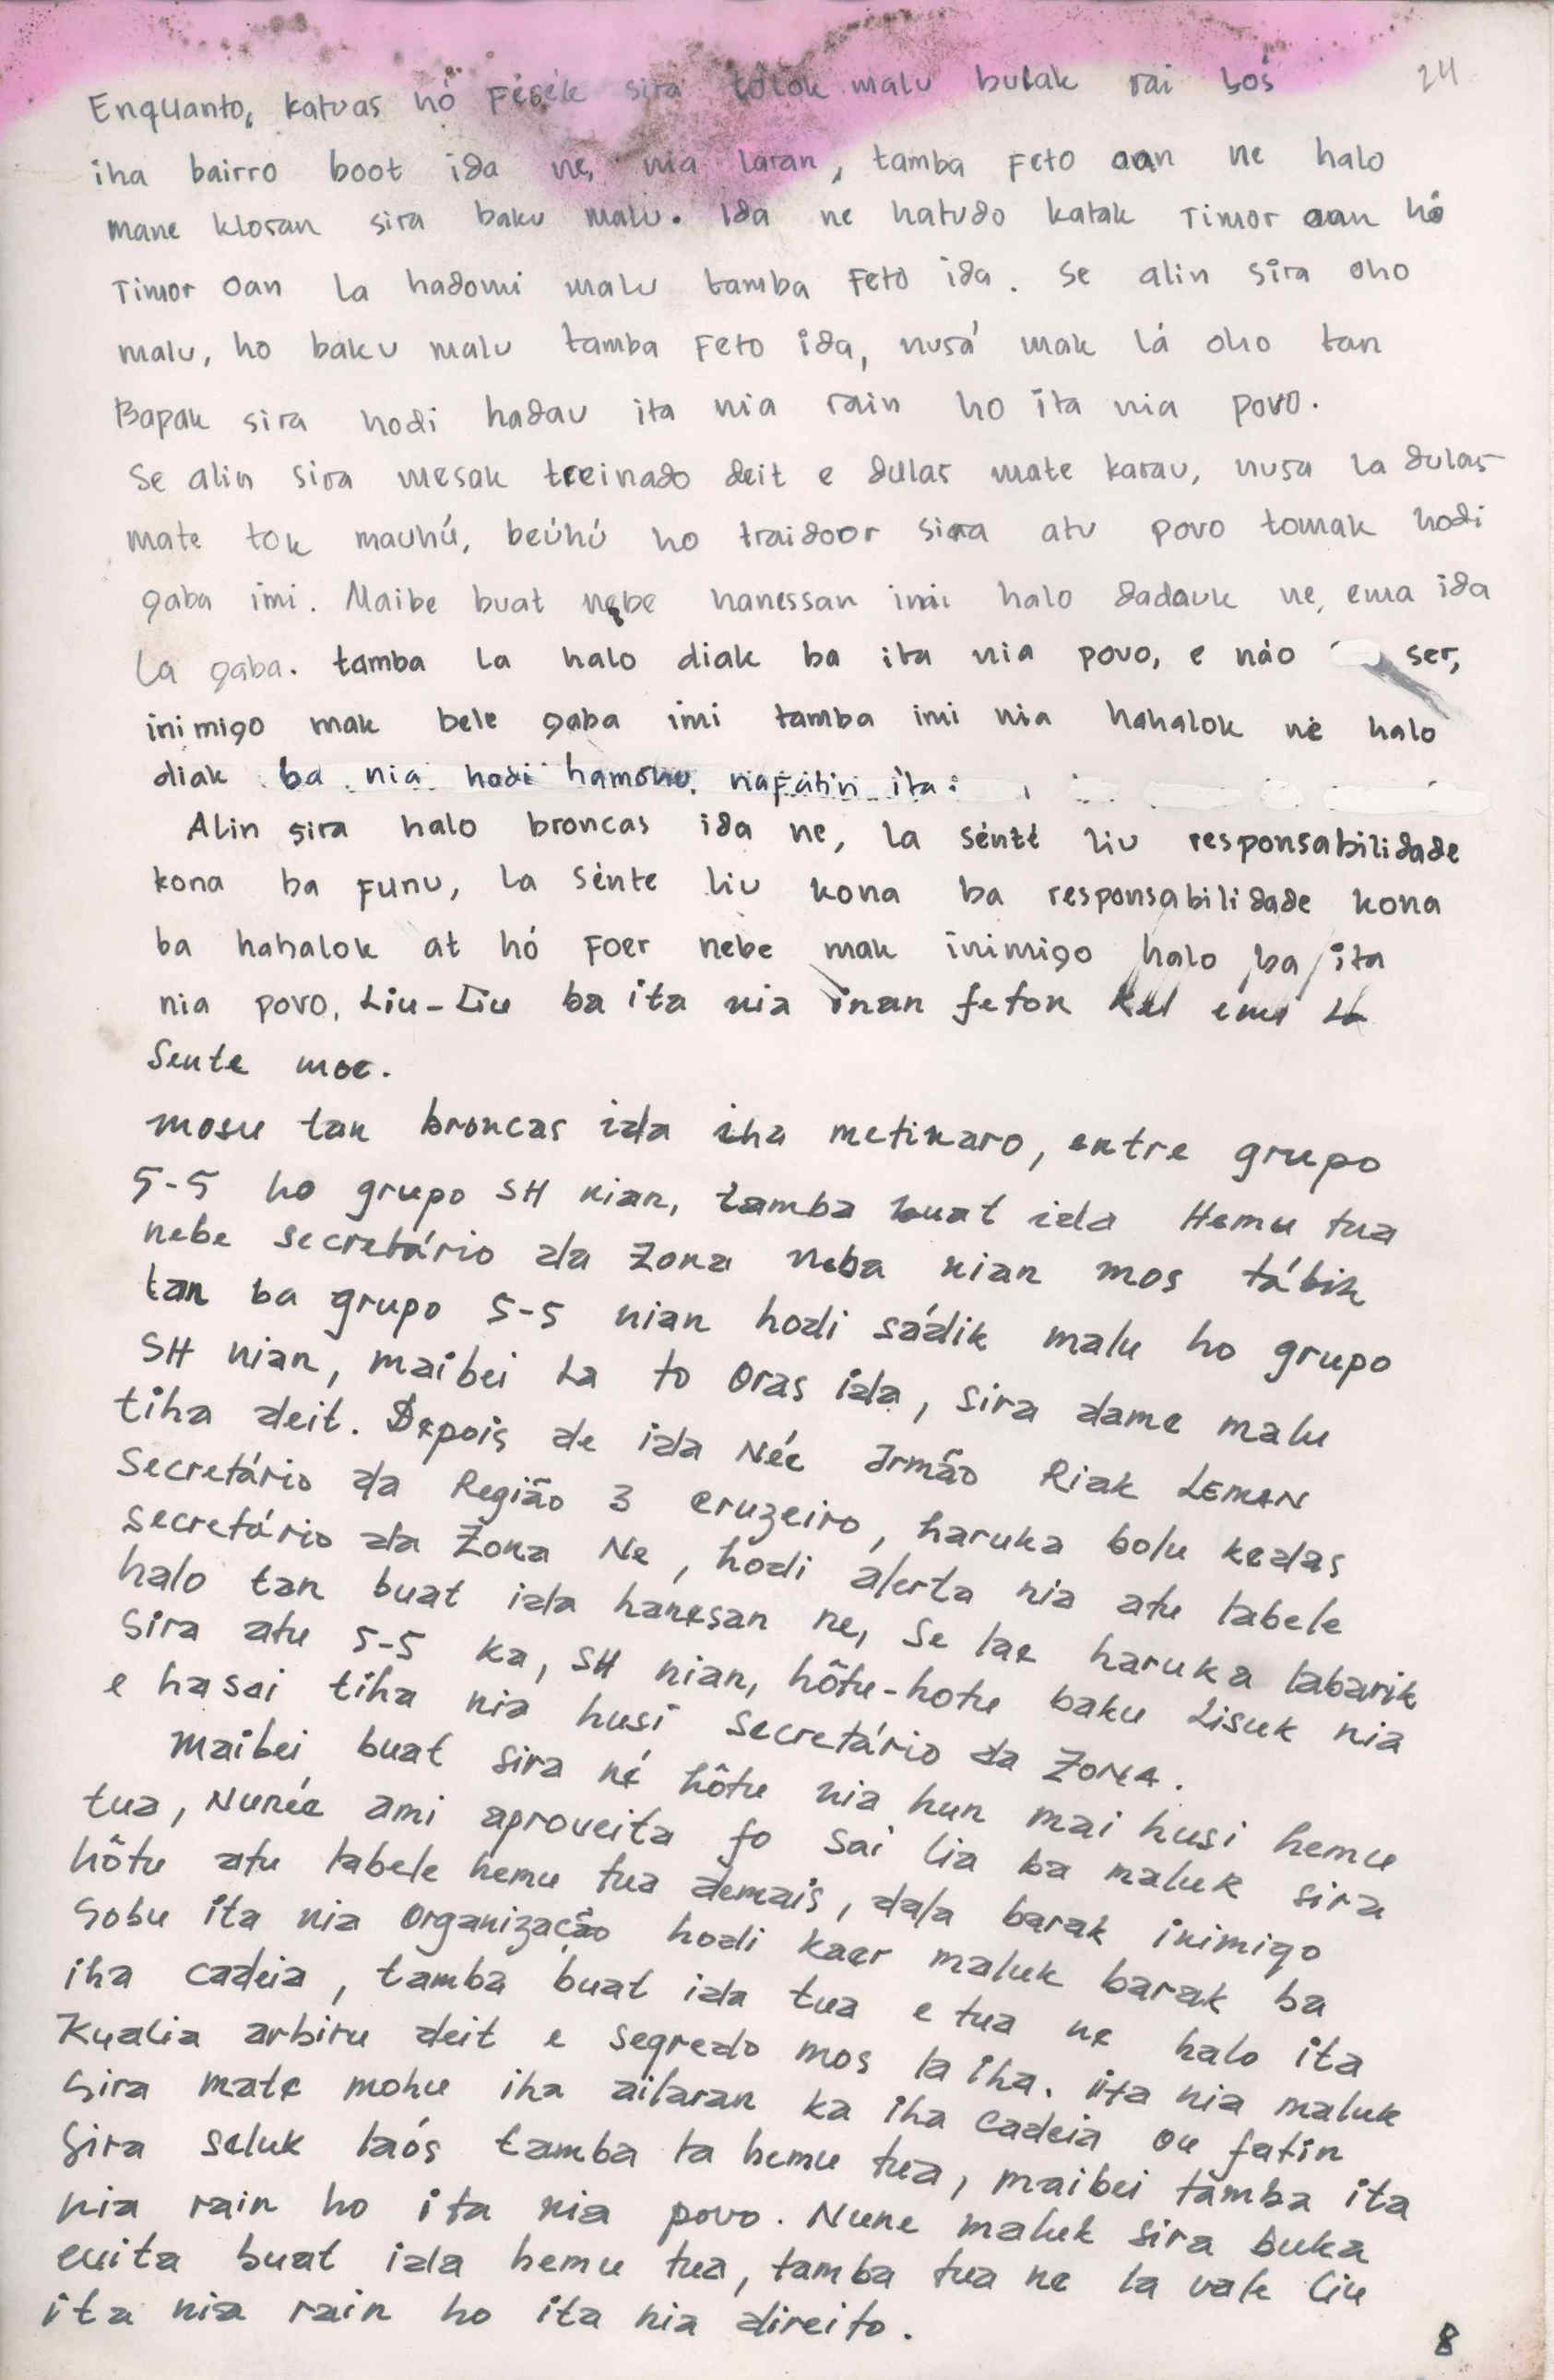 24
Enquanto, katuas hó Fésék sira tólok malu bulak rai boś
iha bairro boot ida ne, nia laran, tamba Feto oan ne halo
mane klosan sira baku malu. Ida ne hatudo katak Timor oan hó
Timor oan la hadomi malu tamba Feto ida. Se alin sira oho
malu, ho baku malu tamba Feto ida, nusá mak lá oho tan
Bapak sira hodi hadau ita nia rain ho ita nia povo.
Se alin sira mesak treinado deit e dulas mate karau, nusa la dulas
mate tok mauhú, beúhú ho traidoor sira atu povo tomak hodi
gaba imi. Maibe buat nebe hanessan imi halo dadauk ne, ema ida
la gaba. tamba la halo diak ba ita nia povo, e não ser,
inimigo mak bele gaba imi tamba imi nia hahalok né halo
diak ba nia hodi hamohu nafatin ita.
Alin sira halo broncas ida ne, la sénté liu responsabilidade
kona ba funu, la sénte liu kona ba responsabilidade kona
ba hahalok at hó foer nebe mak inimigo halo ba ita
nia povo, Liu-Liu ba ita nia inan feton
Sente moe.
mosu tan broncas ida iha metinaro, entre grupo
5-5 ho grupo SH nian, tamba buat ida Hemu tua
nebe secretário da Zona neba nian mos tábik
tan ba grupo 5-5 nian hodi sádik malu ho grupo
SH nian, maibei La to Oras ida, sira dame malu
tiha deit. Depois de ida Née Irmão Riak LEMAN
Secretário da Região 3 cruzeiro, haruka bolu kedas
secretário da Zona Ne, hodi alerta nia atu labele
halo tan buat ida hanesan ne, Se lae haruka labarik
Sira atu 5-5 ka, SH nian, hôtu-hotu baku Lisuk nia
e hasai tiha nia husi secretário da Zona.
Maibei buat sira né hôtu nia hun mai husi hemu
tua, Nunée ami aproveita fo sai lia ba maluk sira
hôtu atu labele hemu tua demais, dala barak inimigo
Sobu ita nia Organização hodi kaer maluk barak ba
iha cadeia, tamba buat ida tua e tua ne halo ita
Kualia arbiru deit e segredo mos la iha. ita nia maluk
Sira mate mohu iha ailaran ka iha cadeia ou fatin
Sira seluk laós tamba la hemu tua, maibei tamba ita
nia rain ho ita nia povo. Nune maluk sira buka
evita buat ida hemu tua, tamba tua ne la vale liu
ita nia rain ho ita nia direito.
8